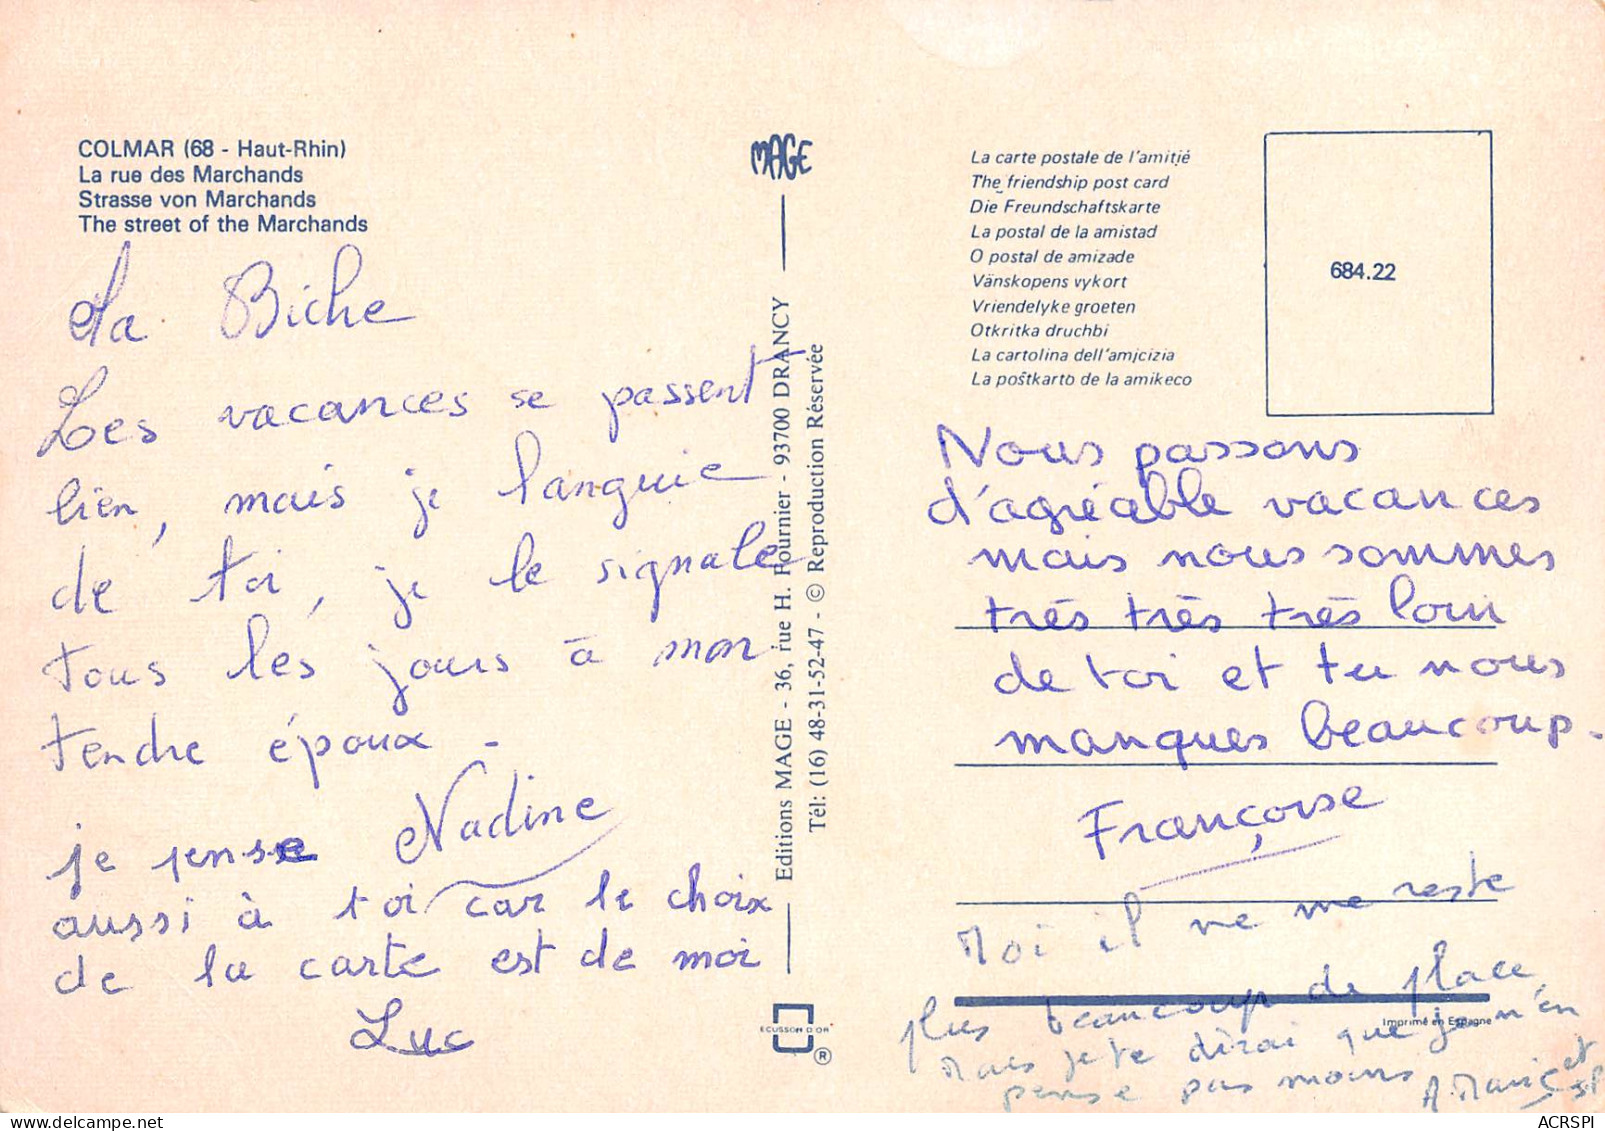 COLMAR (68 - Haut-Rhin)
La rue des Marchands
Strasse von Marchands
The street of the Marchands
La Biche
Les vacances se passent
bien, mais je languie
de toi, je le signale
tous les jours à mon
tendre époux.
Nadine
je pense
aussi à toi car le choix
de la carte est de moi
Luc
MAGE
Editions MAGE - 36, rue H. Fournier - 93700 DRANCY
Tél: (16) 48-31-52-47 - © Reproduction Réservée
ECUSSON D'OR
®
La carte postale de l'amitié
The friendship post card
Die Freundschaftskarte
La postal de la amistad
O postal de amizade
Vänskopens vykort
Vriendelyke groeten
Otkritka druchbi
La cartolina dell'amicizia
La poŝtkarto de la amikeco
684.22
Nous passons
d'agréable vacances
mais nous sommes
très très très très loin
de toi et tu nous
manques beaucoup.
Françoise
Moi il ne me reste
plus beaucoup de place,
Imprimé en Espagne
Mais je te dirai que je n'en
pense pas moins
et
ACRSPI